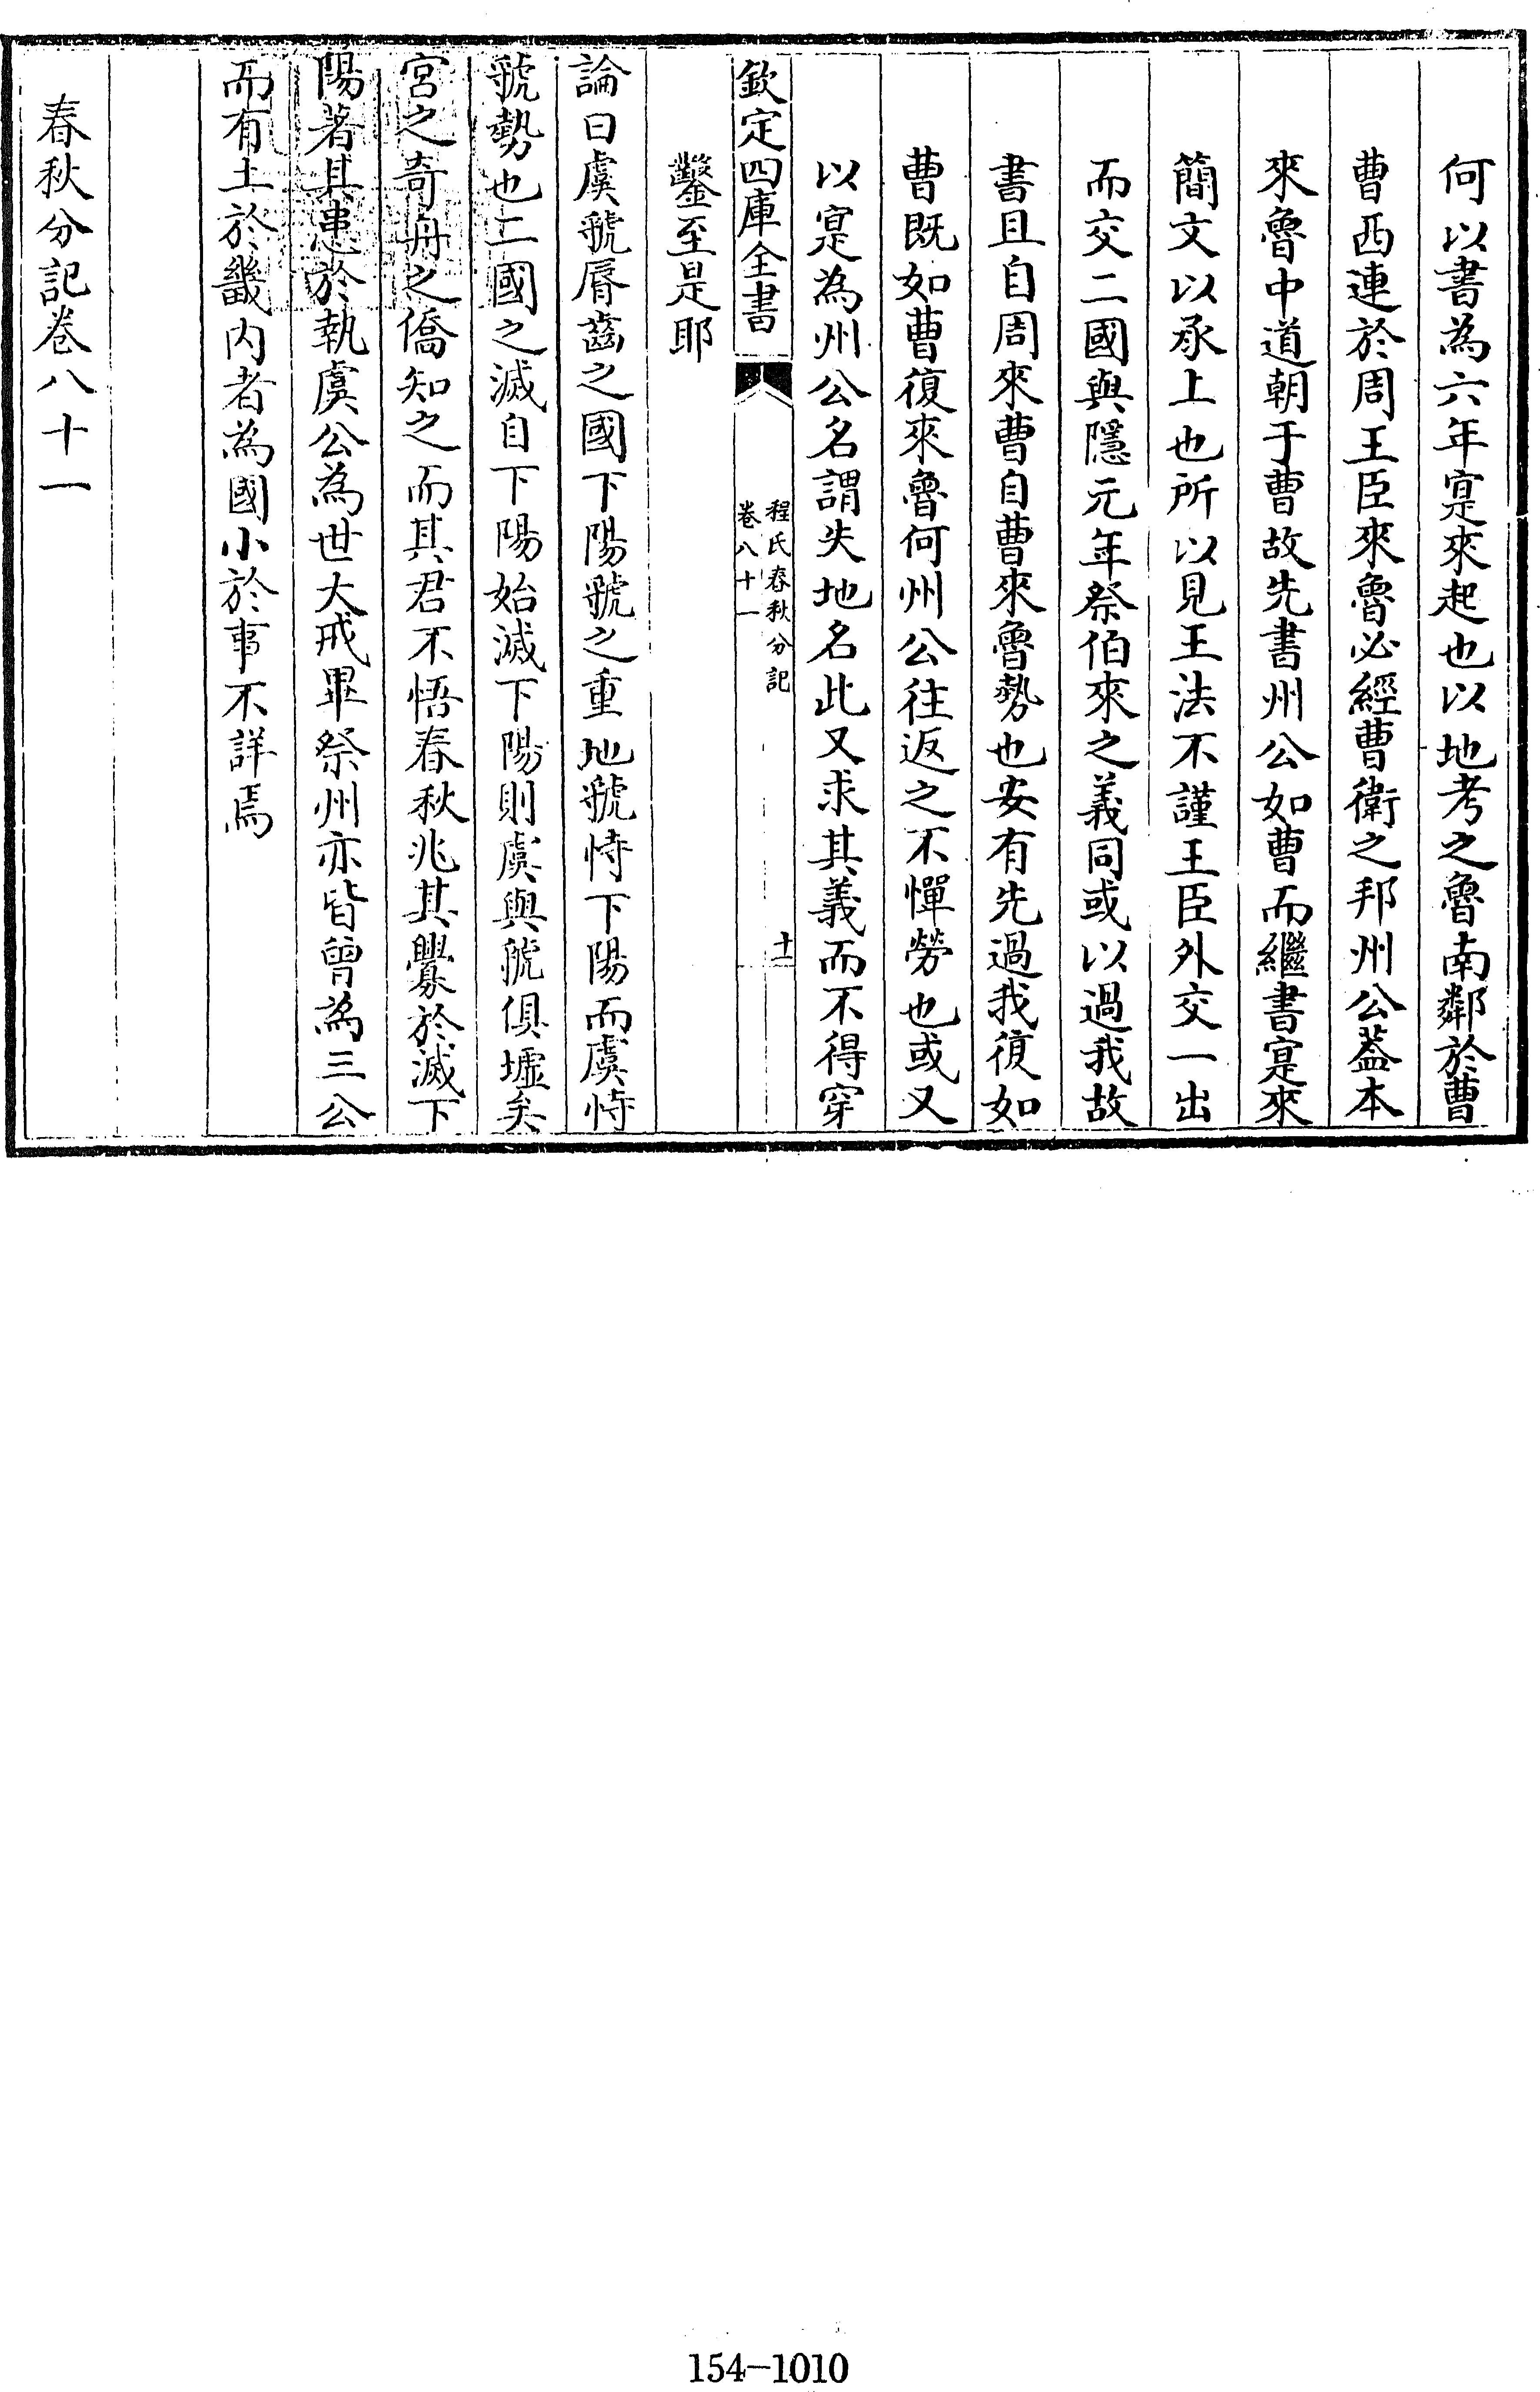 何以書為六年寔來起也以地考之魯南鄰於曹
曹西連於周王臣來魯必經曹衛之邦州公葢本
來魯中道朝于曹故先書州公如曹而繼書寔來
簡文以承上也所以見王法不謹王臣外交一出
而交二國與隱元年祭伯來之義同或以過我故
書且自周來曹自曹來魯勢也安有先過我復如
曹既如曹復來魯何州公往返之不憚勞也或又
以寔為州公名謂失地名此又求其義而不得穿
欽定四庫全書
程氏春秋分記
卷八十一
十二
鑿至是耶
論曰虞虢脣齒之國下陽虢之重地虢恃下陽而虞恃
虢勢也二國之滅自下陽始滅下陽則虞與虢俱墟矣
宮之奇舟之僑知之而其君不悟春秋兆其釁於滅下
陽著其患於執虞公為世大戒畢祭州亦皆曾為三公
而有土於畿内者為國小於事不詳焉
春秋分記卷八十一
154-1010